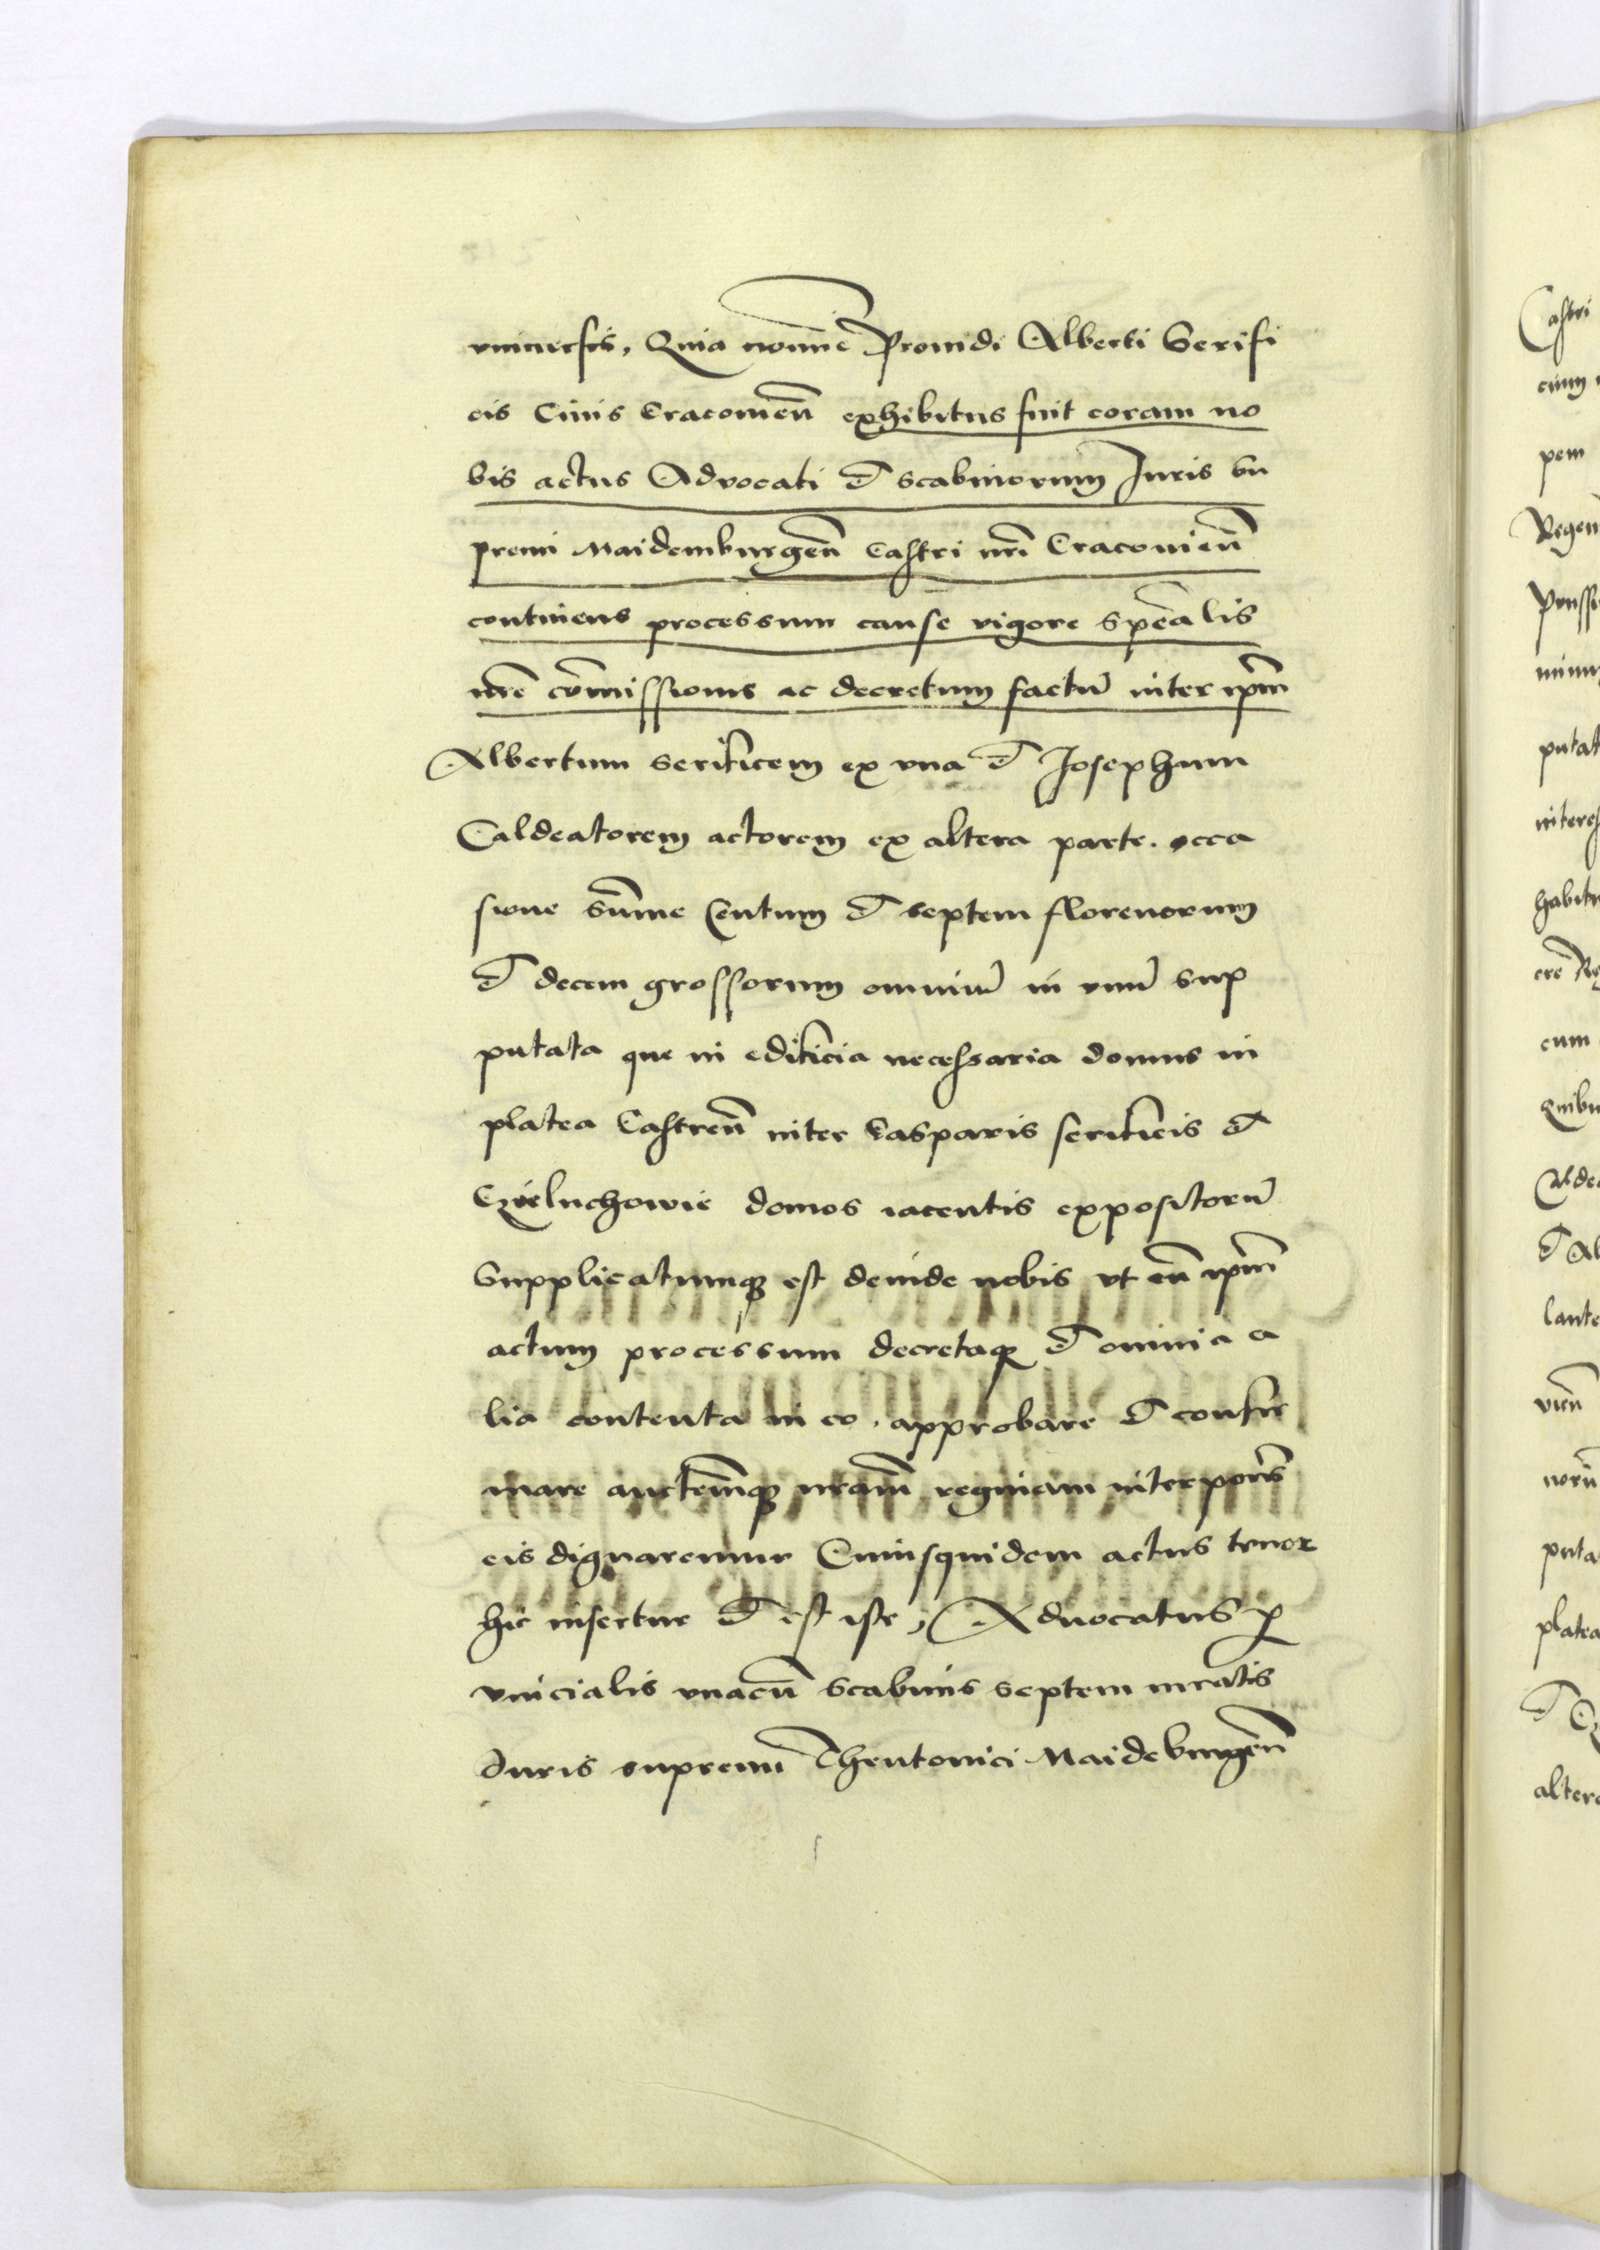 vniuersis, Quia nomine Prouidi Alberti Serifi
cis Ciuis Cracouien̄ exhibitus fuit coram no
bis actus Aduocati et scabinorum Iuris su
premi Maidemburgen̄ Castri nr̄i Cracouien̄
continens processum cause vigore sp̄ealis
nr̄e com̄issionis ac decretum factū inter ip̄m
Albertum serificem ex vna et Josephum
Caldeatorem actorem ex altera parte. occa
sione sum̄e Centum et septem florenorum
et decem grossorum omniū in vnū sup
putata que in edificia necessaria domus in
platea Castren̄ inter Casparis serificis et
domos iacentis expositorū
Supplicatumq3 est deinde nobis vt eū ip̄m
actum processum decretaq3 et omnia a
lia contenta in eo. approbare et confir
mare auctem̄q3 nr̄am regniam interpon̄s
eis dignaremur Cuiusquidem actus tenor
hic insertur et est iste, Aduocatus p
uincialis vnacū Scabinis septem iuratis
Iuris supremi Theutonici Maideburgen̄
Castri
cum
pem
Regen
putat
interes
habitu
cum
Quibu
Caldea
et Al
lante
uien̄
norū
puta
platea
altera